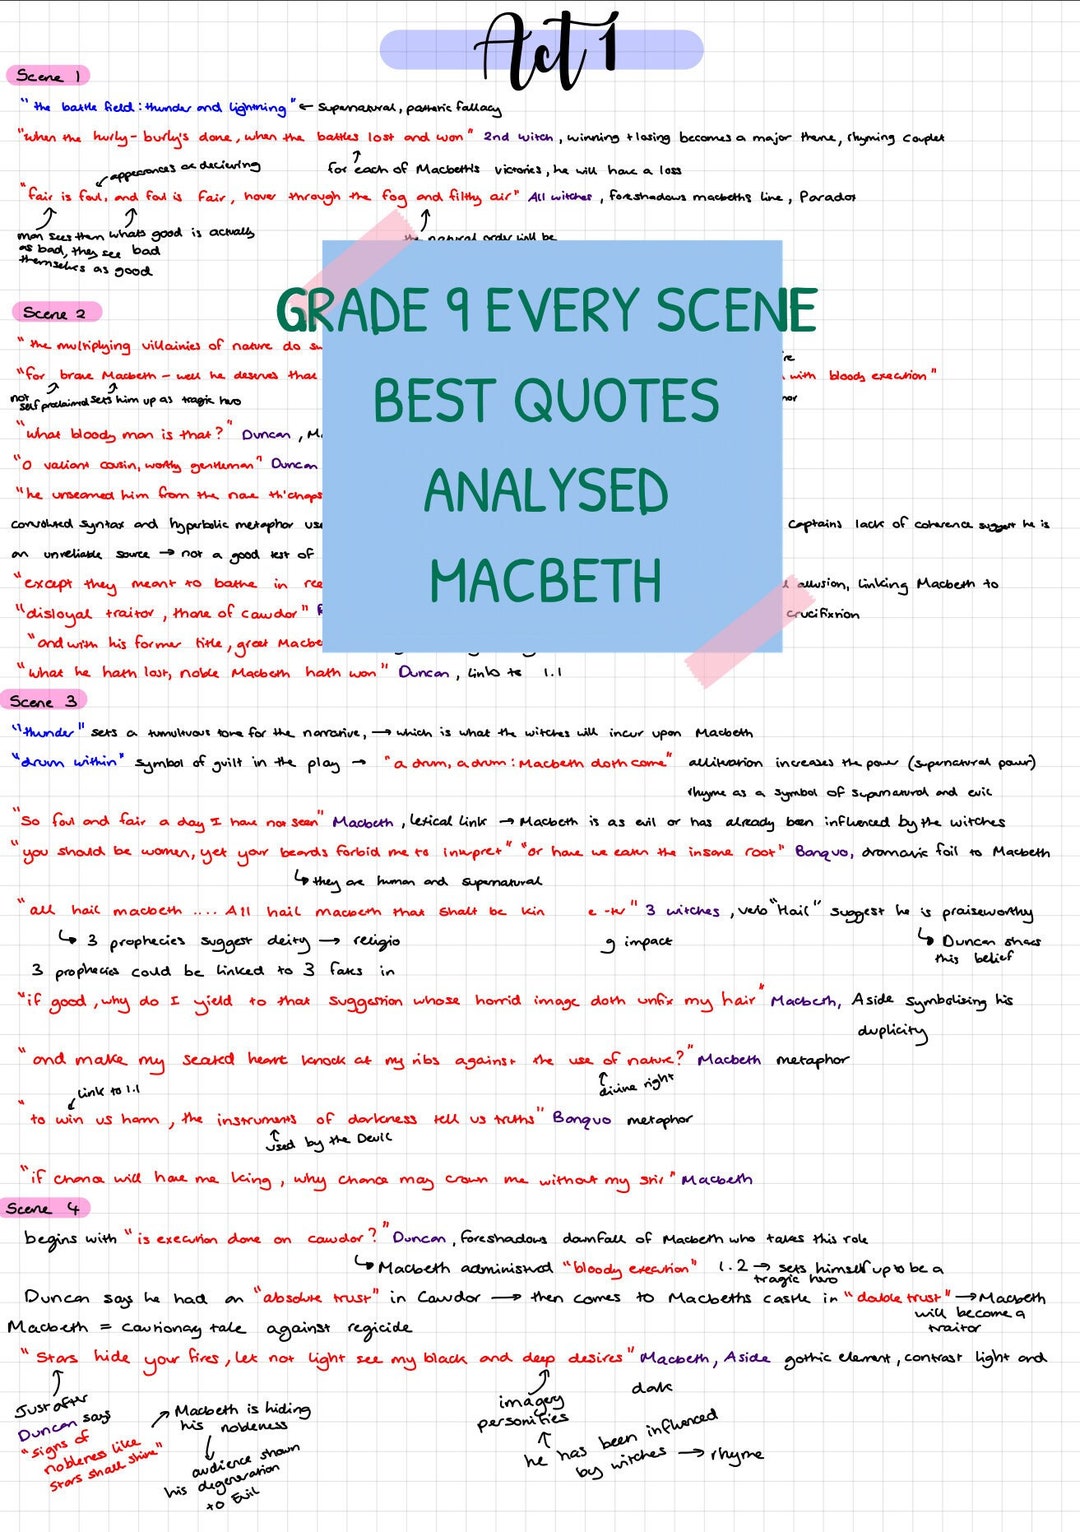 Act 1
Scene 1
"the battle field: thunder and lightning" ← supernatural, pathetic fallacy
"when the hurly-burly's done, when the battles lost and won" 2nd witch, winning + losing becomes a major theme, rhyming couplet
appearances are decieving
for each of Macbeth's victories, he will have a loss
"fair is foul, and foul is fair, hover through the fog and filthy air" All witches, foreshadows macbeths line, Paradox
man sees them as bad, they see themselves as good
whats good is actually bad
the natural order will be
GRADE 9 EVERY SCENE
BEST QUOTES
ANALYSED
MACBETH
Scene 2
"the multiplying villainies of nature do sw
"for brave Macbeth - well he deserves that
with bloody execution"
not self proclaimed
sets him up as tragic hero
"what bloody man is that?" Duncan, M
"O valiant cousin, worthy gentleman" Duncan
"he unseamed him from the nave th'chaps
convoluted syntax and hyperbolic metaphor use
captains lack of coherence suggest he is
an unreliable source → not a good test of
"except they meant to bathe in ree
allusion, linking Macbeth to
crucifixion
"disloyal traitor, thane of cawdor"
"and with his former title, great Macbe
"what he hath lost, noble Macbeth hath won" Duncan, links to 1.1
Scene 3
"thunder" sets a tumultuous tone for the narrative, → which is what the witches will incur upon Macbeth
"drum within" symbol of guilt in the play → "a drum, a drum: Macbeth doth come" alliteration increases the power (supernatural power)
rhyme as a symbol of supernatural and evil
"So foul and fair a day I have not seen" Macbeth, lexical link → Macbeth is as evil or has already been influenced by the witches
"you should be women, yet your beards forbid me to interpret" "or have we eaten the insane root" Banquo, dramatic foil to Macbeth
↳ they are human and supernatural
"all hail macbeth .... All hail macbeth that shalt be kin
3 witches, verb "Hail" suggest he is praiseworthy
↳ 3 prophecies suggest deity → religio
g impact
↳ Duncan shares this belief
3 prophecies could be linked to 3 fates in
"if good, why do I yield to that suggestion whose horrid image doth unfix my hair" Macbeth, Aside symbolising his
duplicity
"and make my seated heart knock at my ribs against the use of nature?" Macbeth metaphor
Link to 1.1
divine right
"to win us harm, the instruments of darkness tell us truths" Banquo metaphor
used by the Devil
"if chance will have me king, why chance may crown me without my stir" Macbeth
Scene 4
begins with "is execution done on cawdor?" Duncan, foreshadows downfall of Macbeth who takes this role
↳ Macbeth administered "bloody execution" 1.2 → sets himself up to be a tragic hero
Duncan says he had an "absolute trust" in Cawdor → then comes to Macbeths castle in "double trust" → Macbeth will become a traitor
Macbeth = cautionary tale against regicide
"Stars hide your fires, let not light see my black and deep desires" Macbeth, Aside gothic element, contrast light and
dark
Just after Duncan says "signs of nobleness like stars shall shine"
Macbeth is hiding his nobleness
audience shown his degeneration to Evil
imagery personifies
he has been influenced by witches → rhyme